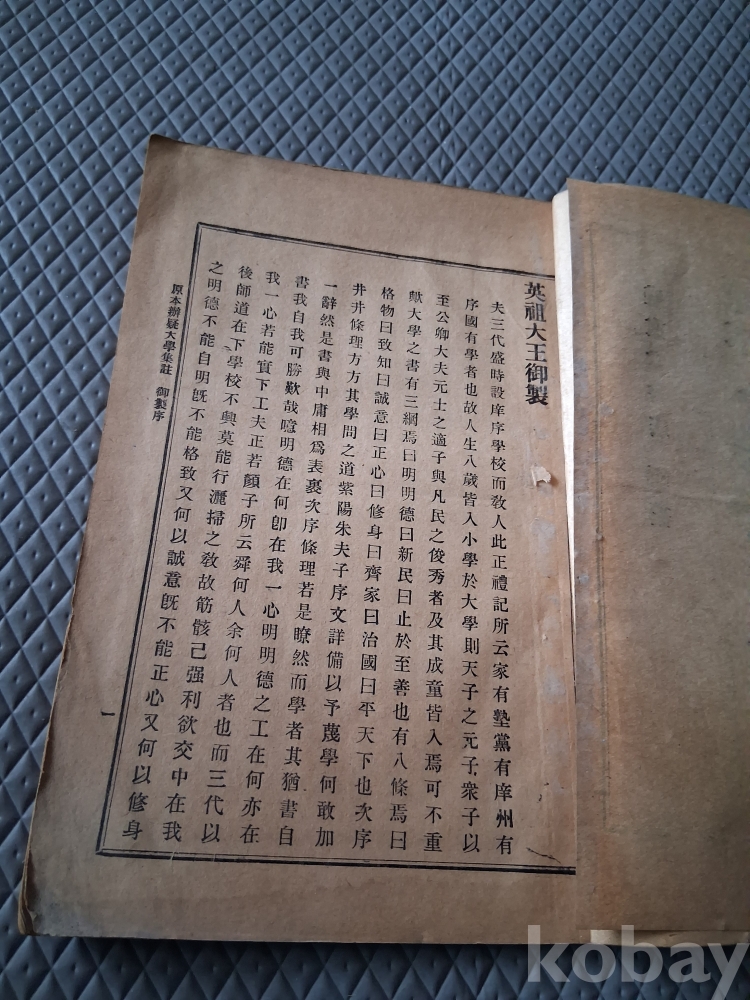 英祖大王御製
夫三代盛時設庠序學校而敎人此正禮記所云家有塾黨有庠州有
序國有學者也故人生八歲皆入小學於大學則天子之元子衆子以
至公卿大夫元士之適子與凡民之俊秀者及其成童皆入焉可不重
歟大學之書有三綱焉曰明明德曰新民曰止於至善也有八條焉曰
格物曰致知曰誠意曰正心曰修身曰齊家曰治國曰平天下也次序
井井條理方方其學問之道紫陽朱夫子序文詳備以予蔑學何敢加
一辭然是書與中庸相爲表裏次序條理若是瞭然而學者其猶書自
書我自我可勝歎哉噫明德在何卽在我一心明明德之工在何亦在
我一心若能實下工夫正若顏子所云舜何人余何人者也而三代以
後師道在下學校不興莫能行灑掃之敎故筋骸已强利欲交中在我
之明德不能自明旣不能格致又何以誠意旣不能正心又何以修身
原本辦疑大學集註 御製序
一
kobay